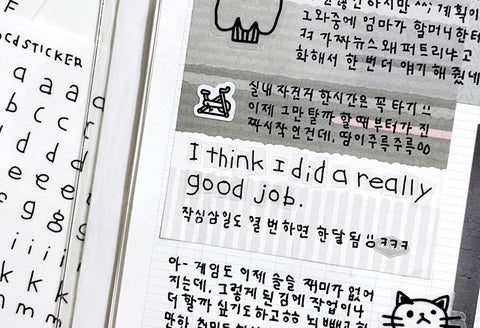 F
cdSTICKER
a a a
b c c
d d d
e e e
g g
i i i
k k k
m m
그와중에 엄마가 할머니한테
가짜뉴스 왜 퍼트리냐고
화해서 한 번 더 얘기 해 줬네
실내 자전거 한시간은 꼭 타기 !!
이제 그만 탈까 할 때부터가 진
짜 시작인건데, 땀이 주륵주륵
I think I did a really
good job.
작심삼일도 열 번하면 한달 됨 ㅋㅋㅋ
아- 게임도 이제 슬슬 재미가 없어
지는데, 그렇게 된 김에 작업이나
더 할까 싶기도하고